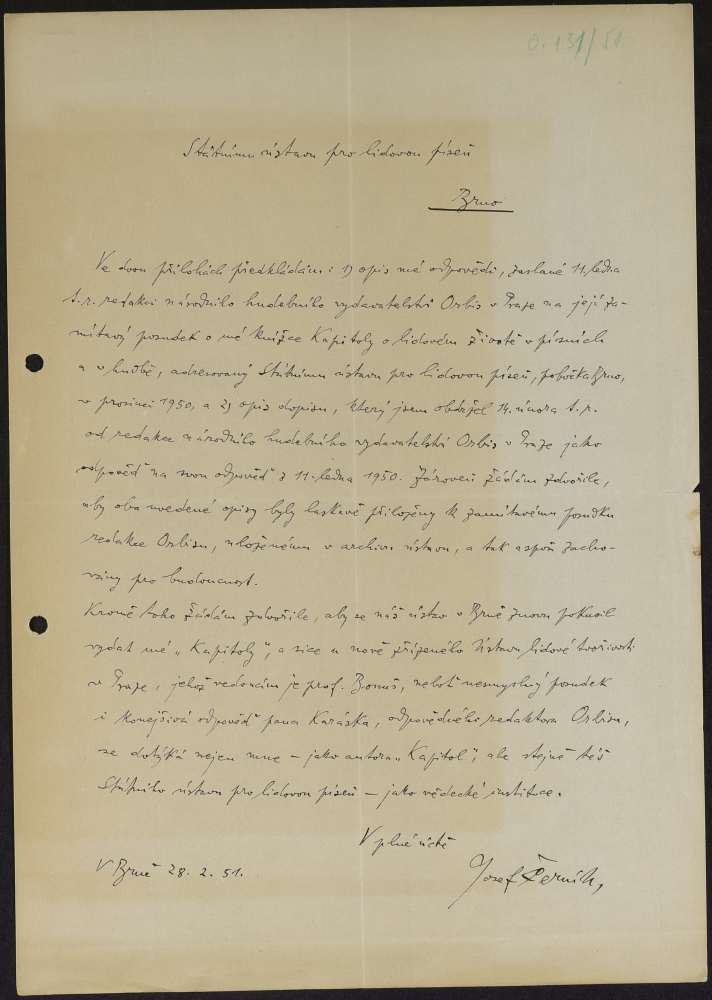 0-131/51
Státnímu ústavu pro lidovou píseň
Brno
Ve dvou přílohách předkládám: 1) opis mé odpovědi, zaslané 11. ledna
t. r. redakci národního hudebního vydavatelství Orbis v Praze na její za-
mítavý posudek o mé knížce Kapitoly o lidovém životě v písních
a v hudbě, adresovaný Státnímu ústavu pro lidovou píseň, pobočka Brno,
v prosinci 1950, a 2) opis dopisu, který jsem obdržel 14. února t. r.
od redakce národního hudebního vydavatelství Orbis v Praze jako
odpověď na svou odpověď z 11. ledna 1950. Zároveň žádám zdvořile,
aby oba uvedené opisy byly laskavě přiloženy k zamítavému posudku
redakce Orbisu, uloženému v archivu ústavu, a tak aspoň zacho-
vány pro budoucnost.
Kromě toho žádám zdvořile, aby se náš ústav v Brně znovu pokusil
vydat mé „Kapitoly", a sice u nově zřízeného Ústavu lidové tvořivosti
v Praze, jehož vedoucím je prof. Bonuš, neboť nesmyslný posudek
i konejšivá odpověď pana Karáska, odpovědného redaktora Orbisu,
se dotýká nejen mne – jako autora „Kapitol", ale stejně též
Státního ústavu pro lidovou píseň – jako vědecké instituce.
V plné úctě
V Brně 28. 2. 51.
Josef Černík,